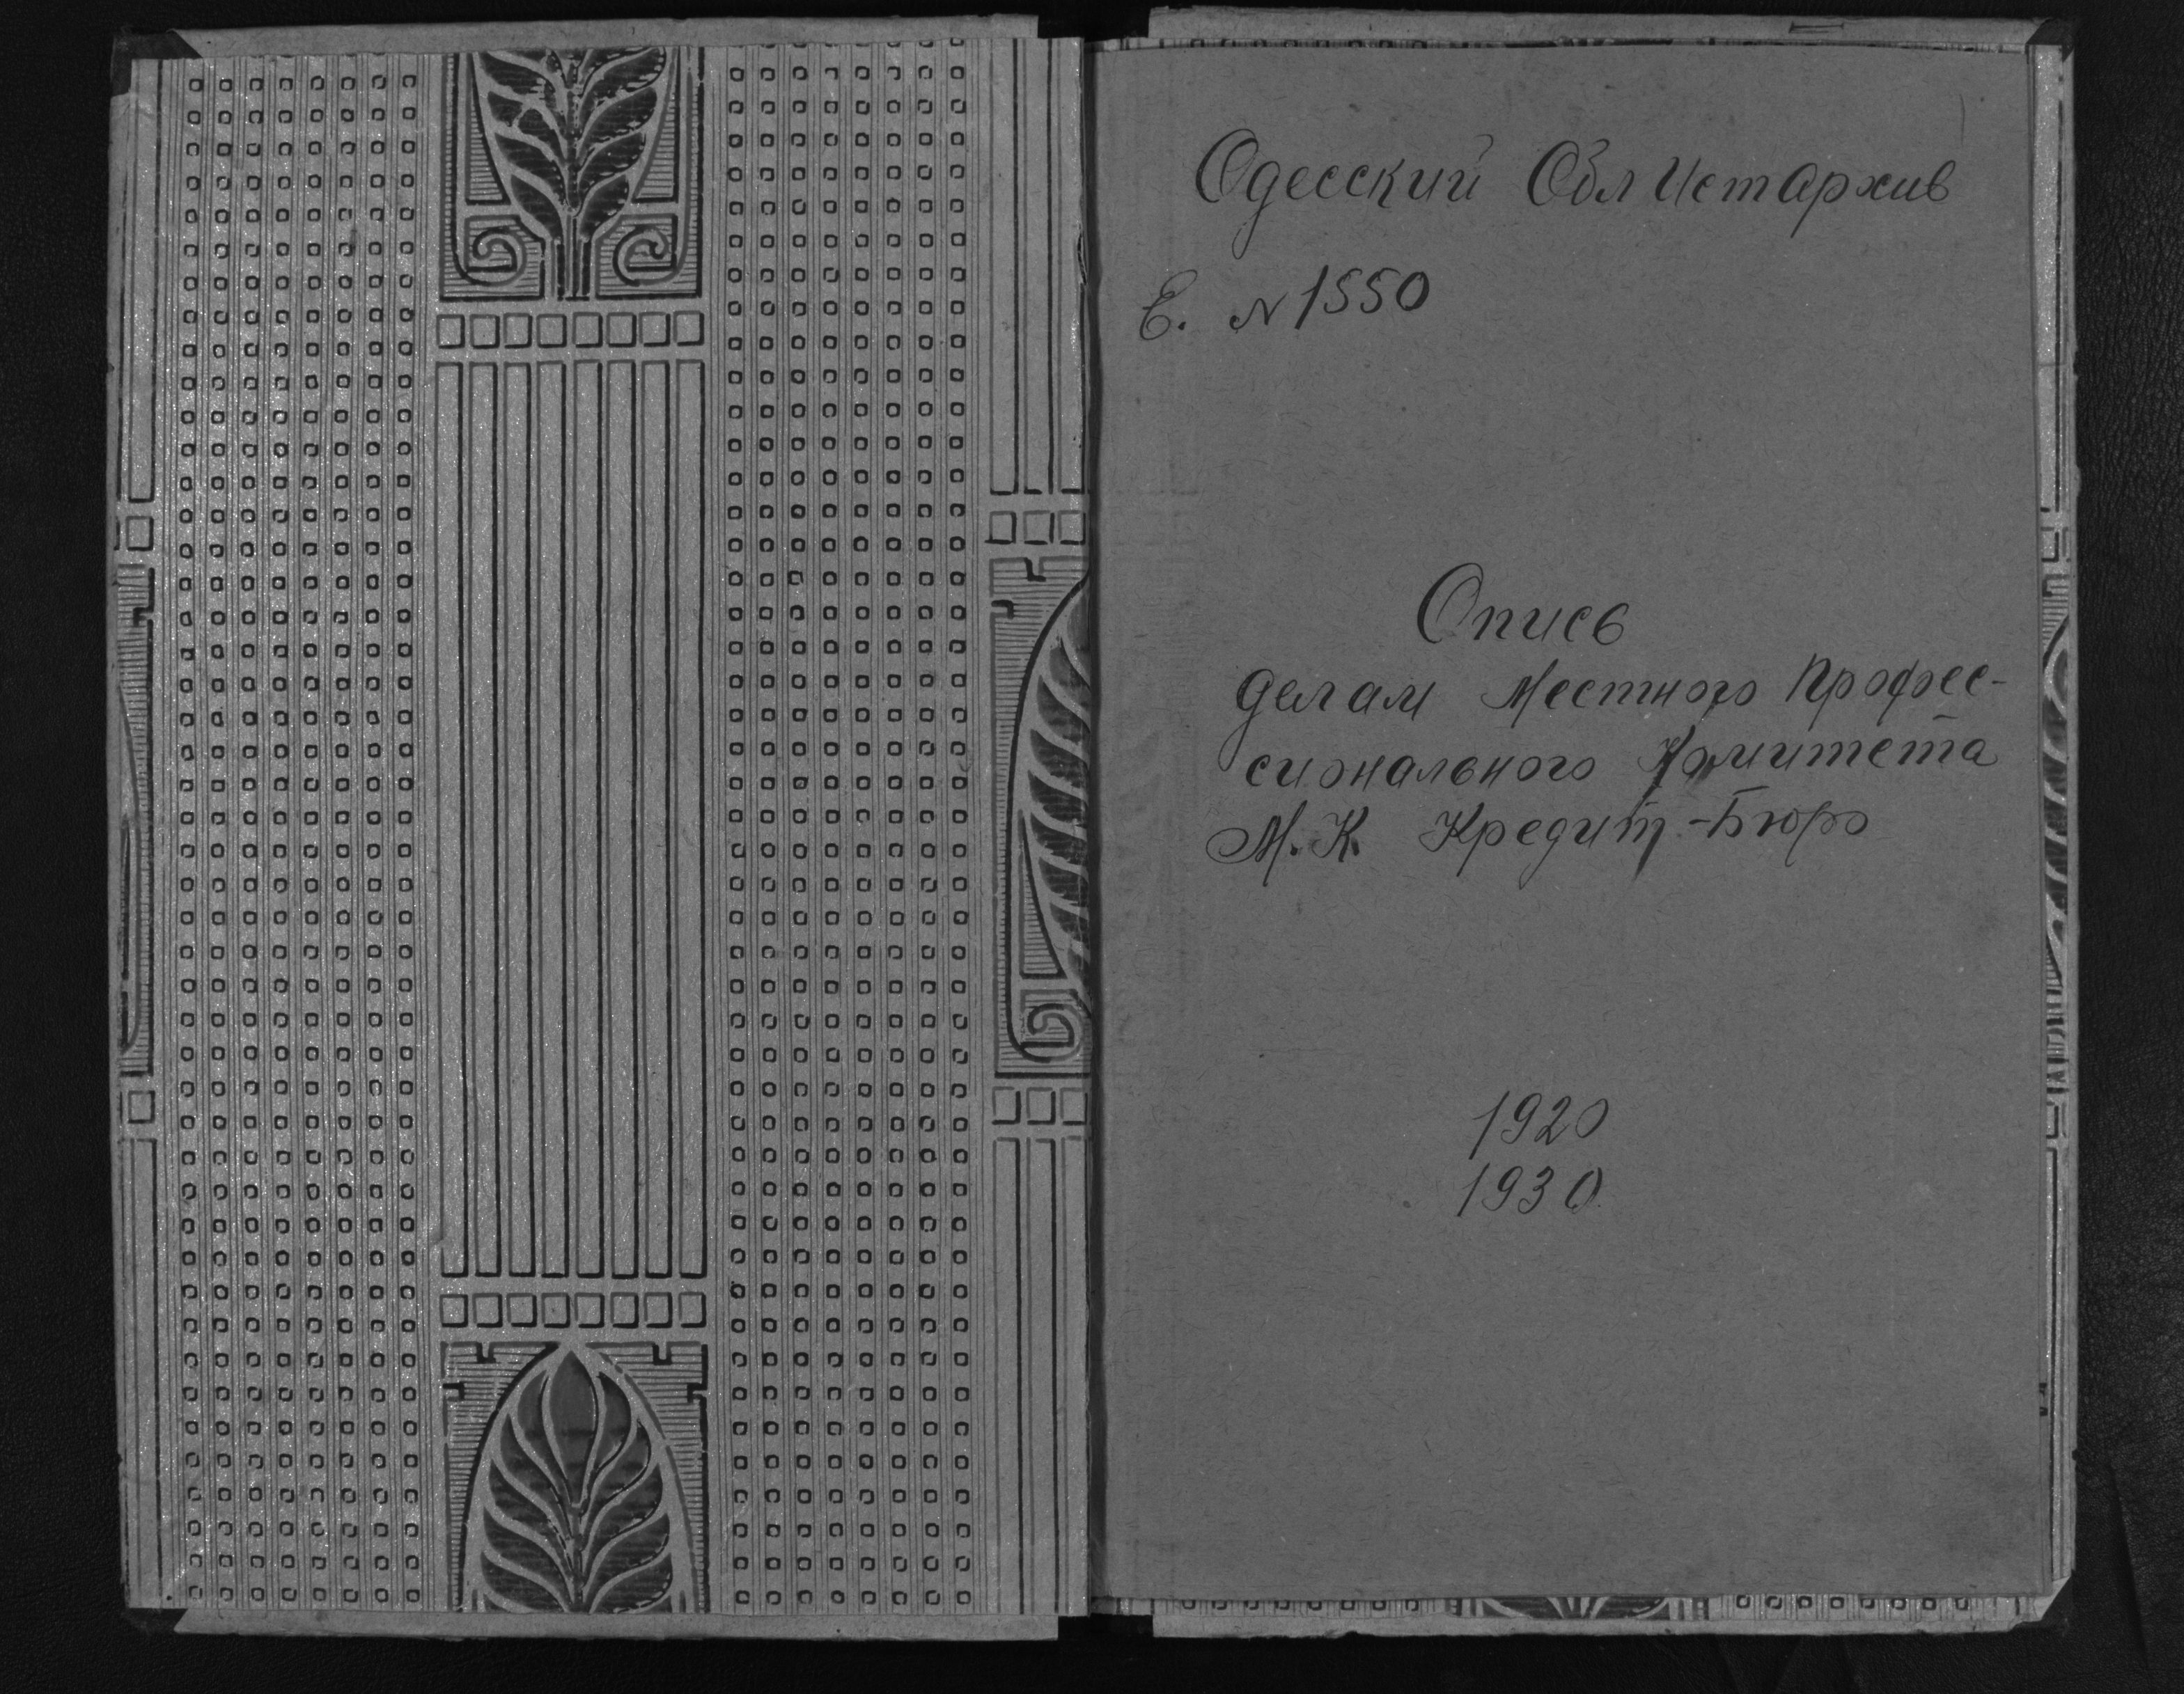 Одесский ОблИстАрхив
Е. N 1550
Опись
делам Местного Профес-
сионального Комитета
М.К. Кредит-Бюро
1920
1930